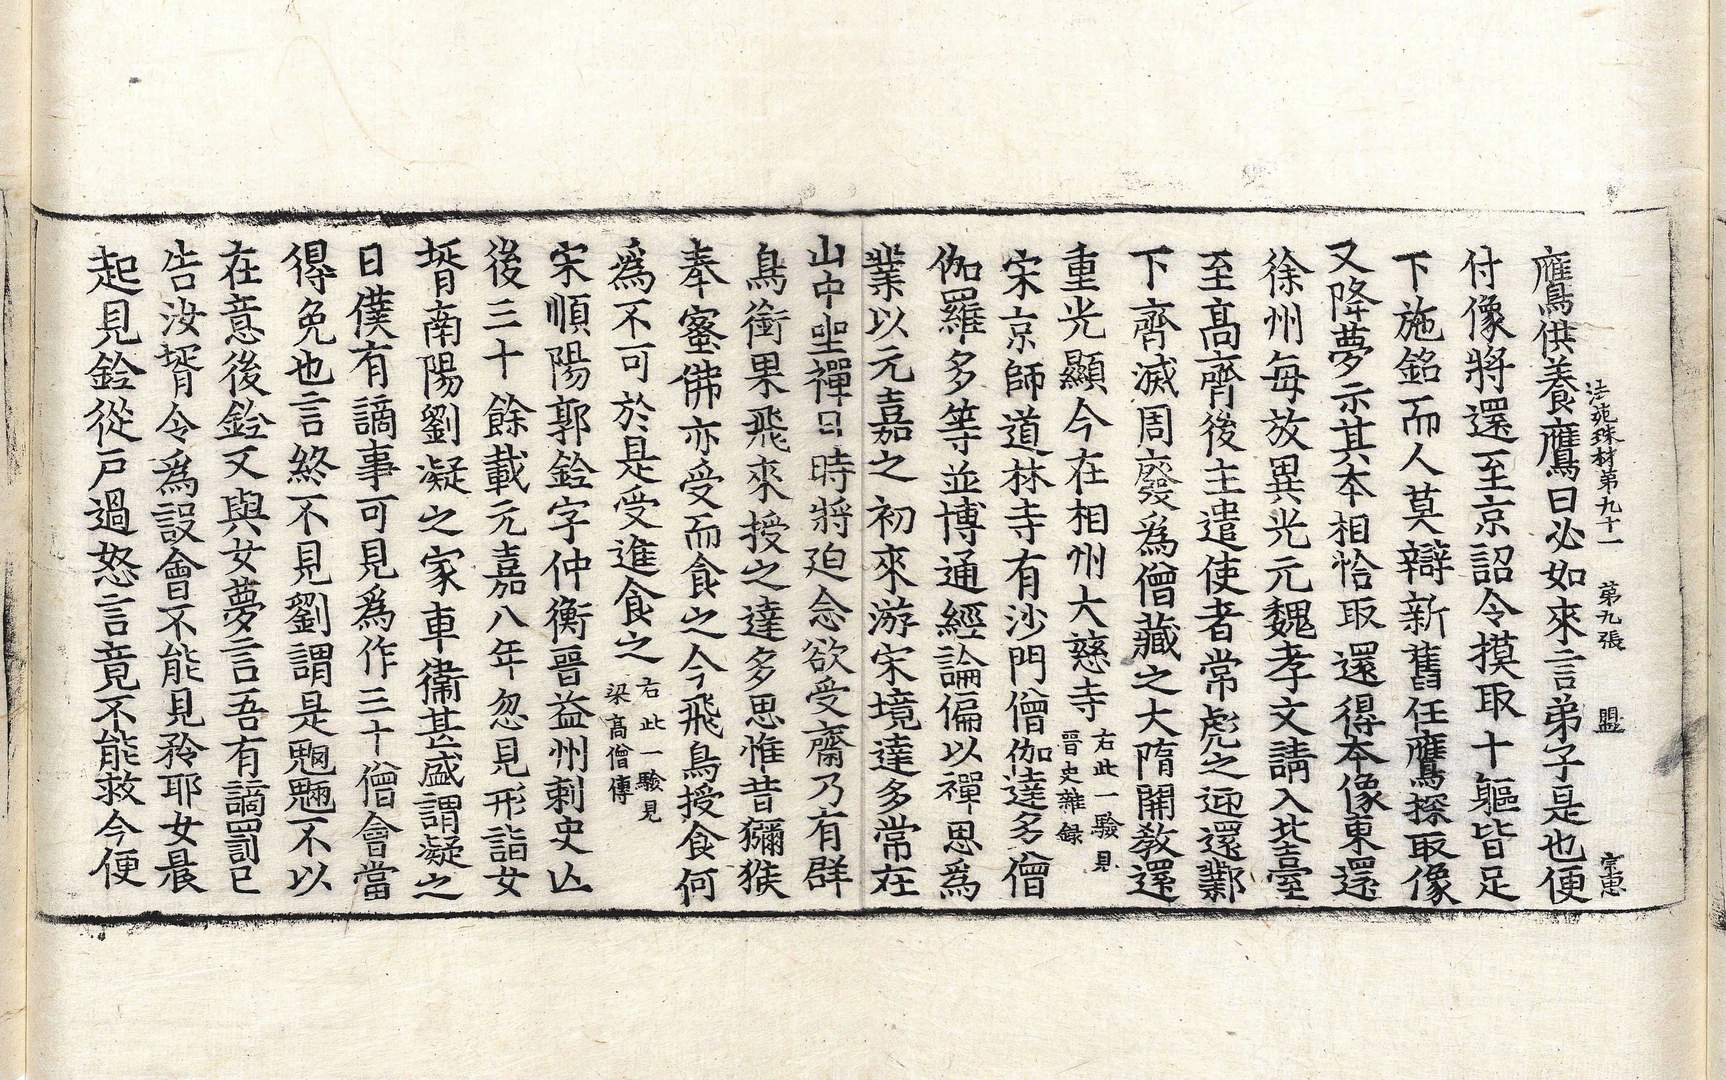 法苑珠林第九十一　第九張　盟　宗惠
鴈供養鴈曰必如來言弟子是也便
付像將還至京詔令摸取十軀皆足
下施銘而人莫辯新舊任鴈探取像
又降夢示其本相恰取還得本像東還
徐州每放異光元魏孝文請入北臺
至高齊後主遣使者常彪之迎還鄴
下齊滅周廢爲僧藏之大隋開教還
重光顯今在相州大慈寺右此一驗見
晉史雜録
宋京師道林寺有沙門僧伽達多僧
伽羅多等並博通經論偏以禪思爲
業以元嘉之初來游宋境達多常在
山中坐禪日時將迫念欲受齋乃有群
鳥銜果飛來授之達多思惟昔獼猴
奉蜜佛亦受而食之今飛鳥授食何
爲不可於是受進食之右此一驗見
梁高僧傳
宋順陽郭銓字仲衡晉益州刺史亾
後三十餘載元嘉八年忽見形詣女
壻南陽劉凝之家車衞甚盛謂凝之
曰僕有謫事可見爲作三十僧會當
得免也言終不見劉謂是魍魎不以
在意後銓又與女夢言吾有謫罰已
告汝壻令爲設會不能見矜耶女晨
起見銓從戶過怒言竟不能救今便